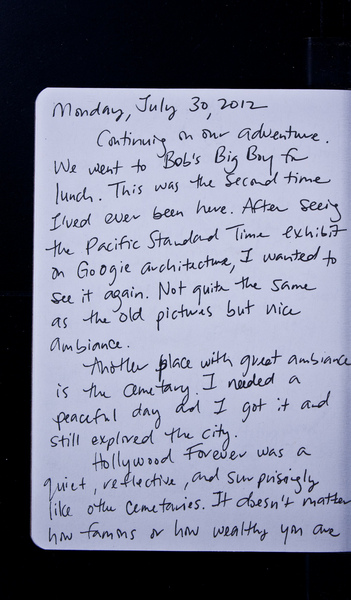 Monday, July 30, 2012
Continuing on our adventure.
We went to Bob's Big Boy for
lunch. This was the second time
I'ved ever been here. After seeing
the Pacific Standard Time exhibit
on Googie architecture, I wanted to
see it again. Not quite the same
as the old pictures but nice
ambiance.
Another place with great ambiance
is the cemetary. I needed a
peaceful day and I got it and
still explored the city.
Hollywood Forever was a
quiet, reflective, and surprisingly
like other cemetaries. It doesn't matter
how famous or how wealthy you are